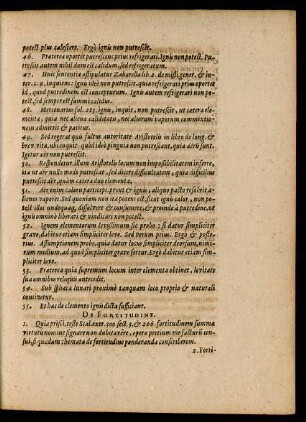 potest plus calescere. Ergò ignis non putrescit.
46. Præterea oportet putrescens prius refrigerari. Ignis non potest. Pu-
trescens autem nihil dum est calidum, sed refrigeratum.
47. Huic sententiæ astipulatur Zabarella lib. 2. de misti gener. & in-
ter. c. 9. inquiens: ignis ideo non putrescit, quia refrigerari prius oportet
id, quod putredinem est concepturum. Ignis autem refrigerari non po-
test, sed semper est summè calidus.
48. Mercenarius fol. 213. ignis, inquit, non putrescit, ut cætera ele-
menta, quia nec alienam qualitatem, nec aliorum vaporum communio-
nem admittit & patitur.
49. Sed regerat quis fultus autoritate Aristotelis in libro de long. &
brev. vita, ubi inquit: quibusdam pinguia non putrescant, quia aërei sunt.
Igitur aër non putrescit.
50. Respondetur illum Aristotelis locum non impossibilitatem inferre,
ita ut aër nullo modo putrescat, sed dicere difficultatem, quia difficilius
putrescit aër, quàm cætera duo elementa.
51. Aër enim caloris particeps, prout & ignis, aliquo pacto resistit va-
lienos vapores. Sed quoniam non ita calidus est, sicuti ignis calor, ut pos-
sit illum undequaq; discutere & consumere, & proinde à putredine, ut
ignis omninò liberari & vindicari non potest.
52. Ignem elementarem levissimum sic probo; si datur simpliciter
grave, dabitur etiam simpliciter leve. Sed verum prius. Ergo & poste-
rius. Assumptionem probo, quia datur locus simpliciter deorsum, nimi-
rum medium, ad quod omnia gravia feruntur. Ergò dabitur etiam sim-
pliciter leve.
53. Præterea quia supremum locum inter elementa obtinet, levitatis
sua omnibus reliquis antecedit.
54. Sub sphæra lunari proximè tanquam loco proprio & naturali
continetur.
55. Et hæc de elemento ignis dicta sufficiant.
DE FORTITUDINE.
1. Quia prisci, teste Scal. exer. 190 sect. 3, & 266. fortitudinem summæ
virtutis nomine insignare non dubitavêre, operæ pretium me facturū cen-
sui, si quædam themata de fortitudine ponderanda conscriberem.
2. Forti-